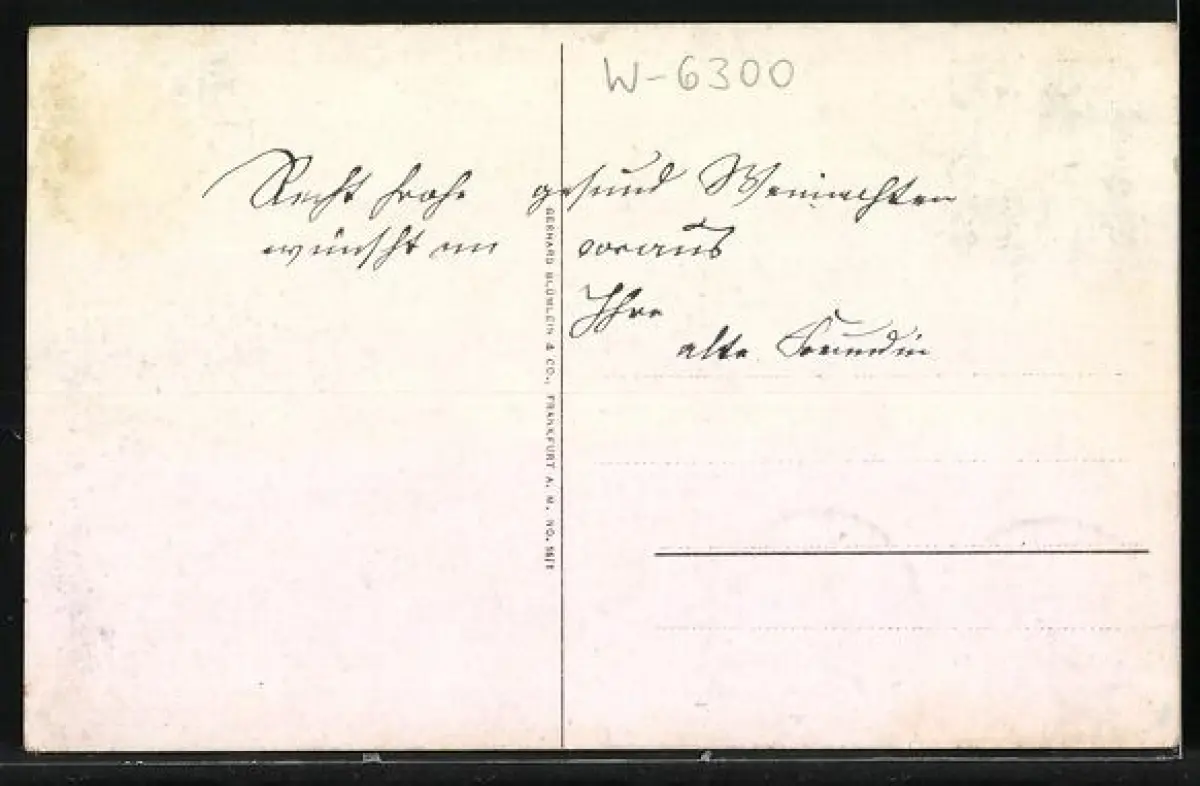 W-6300
Recht frohe gesund Weinachten
wünscht im voraus
Ihre
alte Freundin
GERHARD BLÜMLEIN & CO., FRANKFURT A. M. NO.